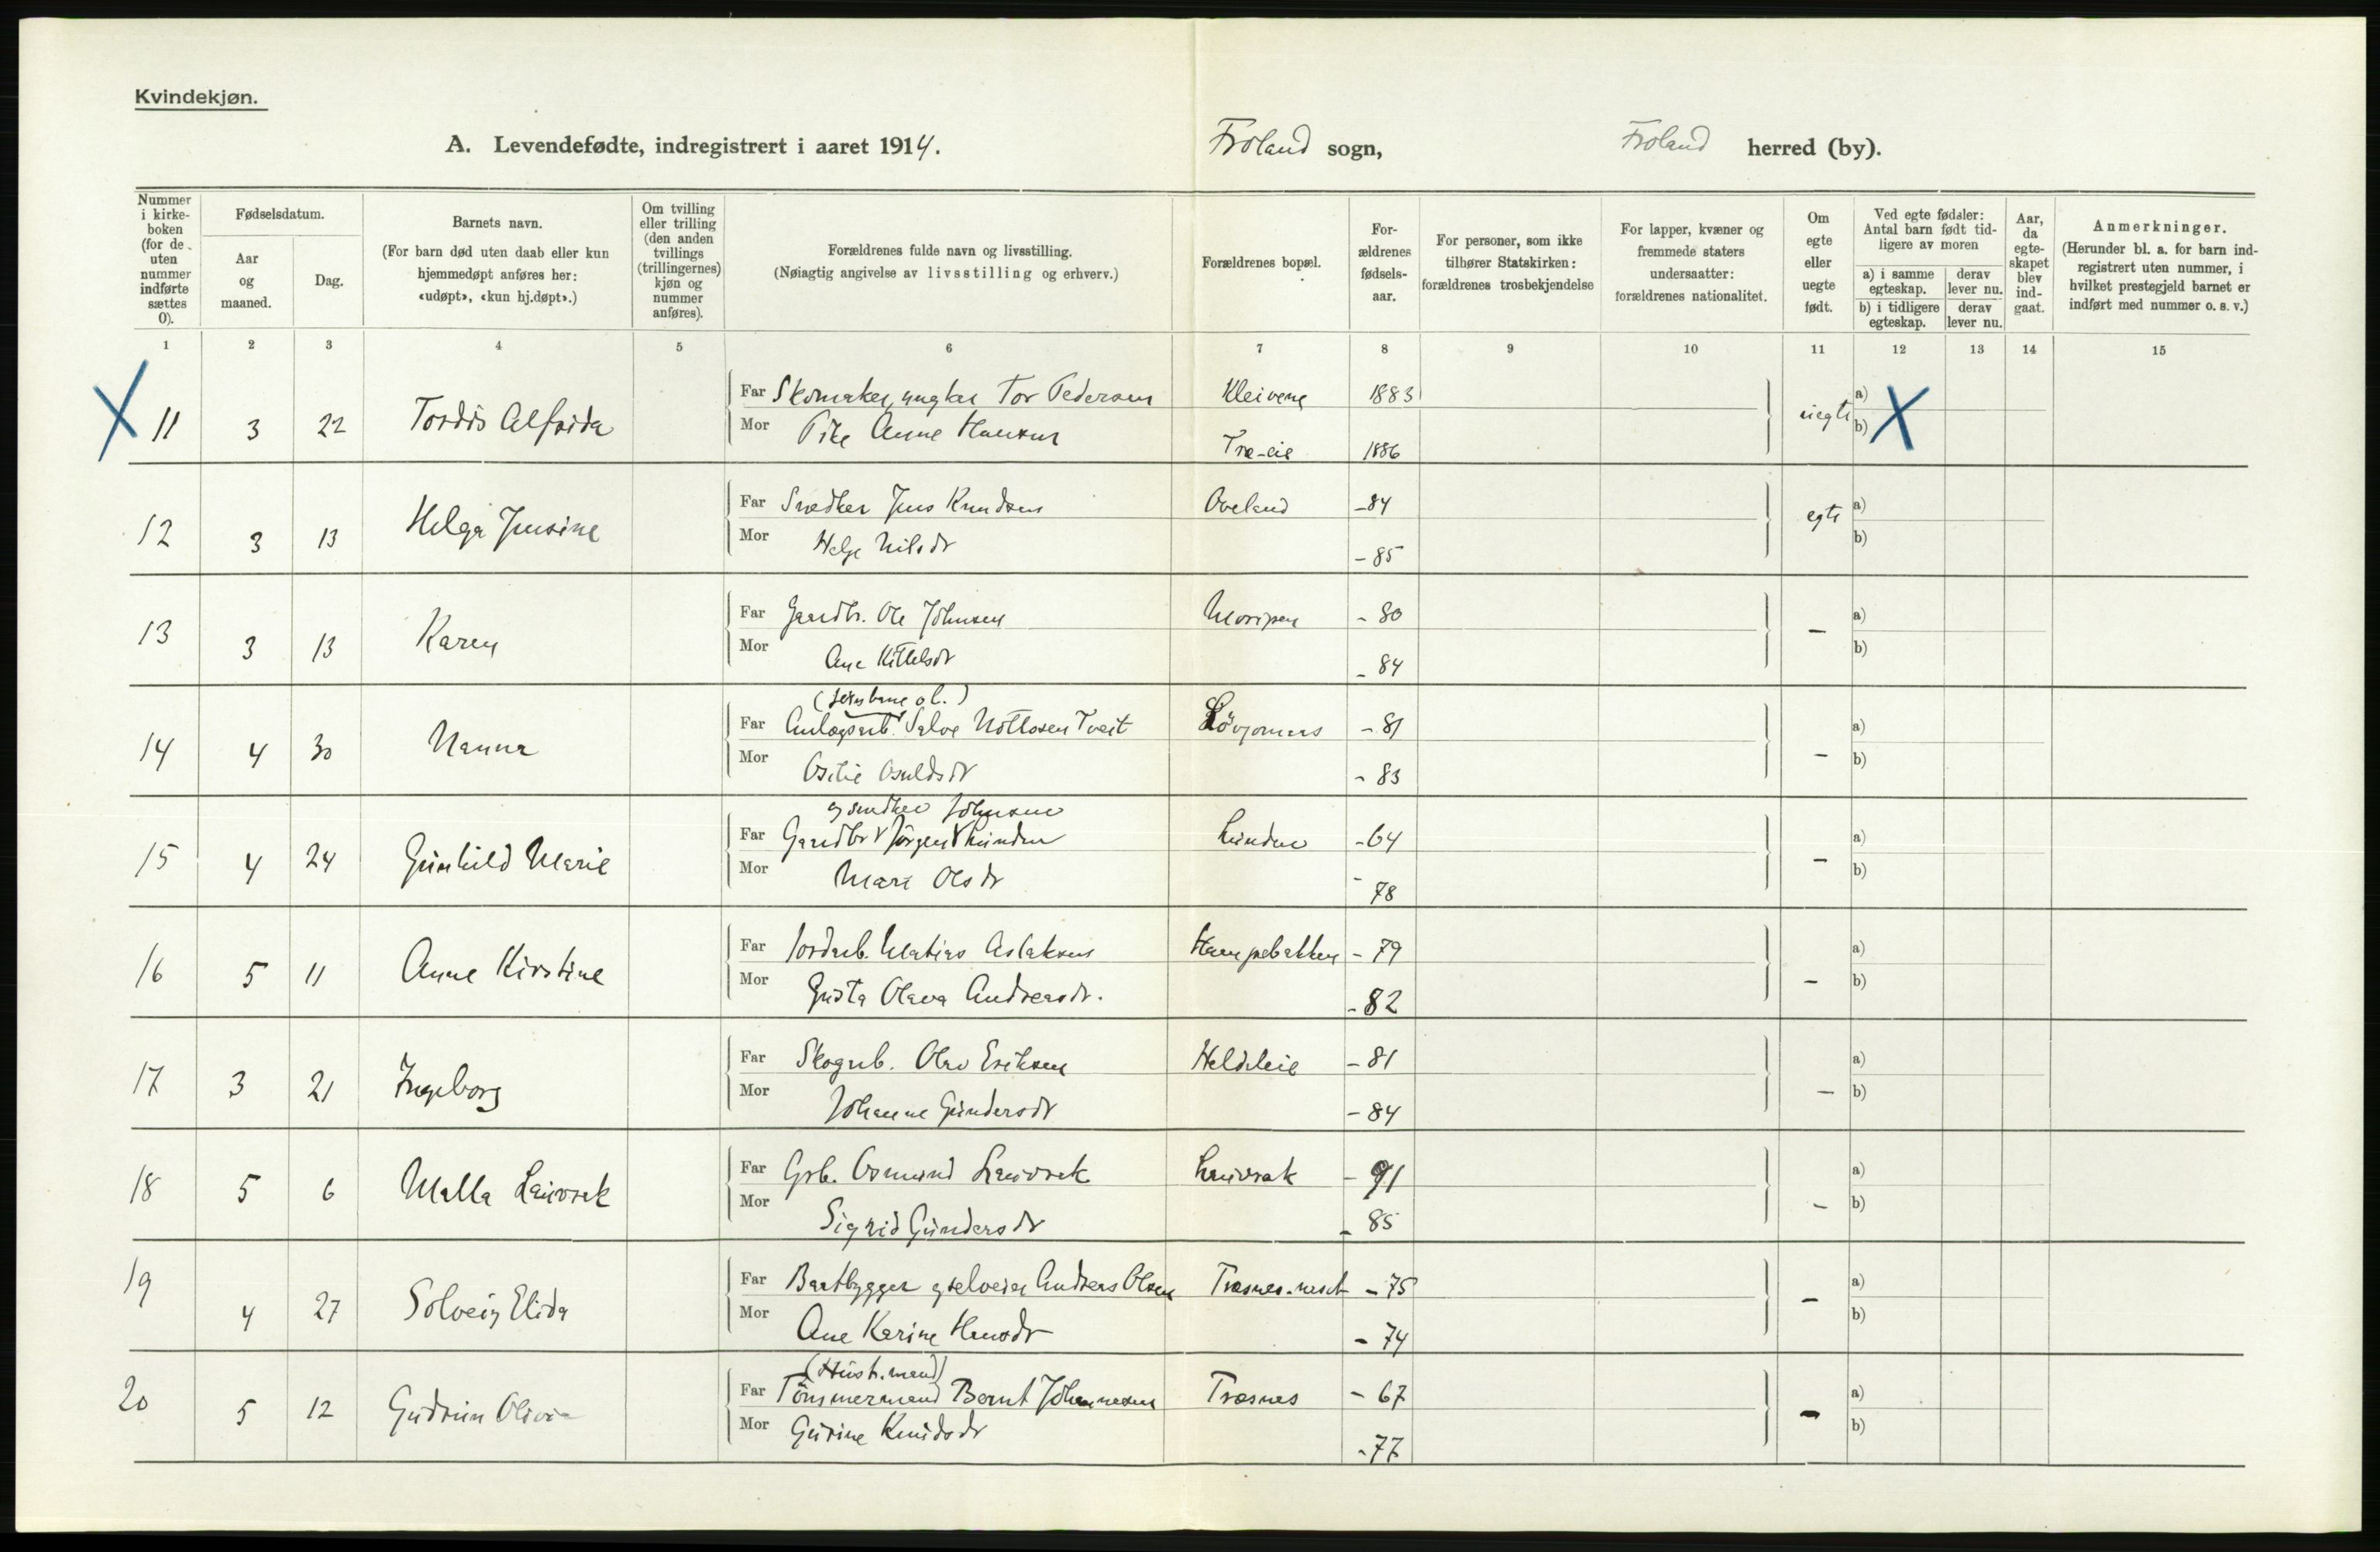 Kvindekjøn.
A. Levendefødte, indregistrert i aaret 1914. Froland sogn, Froland herred (by).
Nummer i kirke-boken (for de uten nummer indførte sættes 0).
Fødselsdatum.
Aar og maaned.
Dag.
Barnets navn.
(For barn død uten daab eller kun hjemmedøpt anføres her: «udøpt», «kun hj.døpt».)
Om tvilling eller trilling (den anden tvillings (trillingernes) kjøn og nummer anføres).
Forældrenes fulde navn og livsstilling.
(Nøiagtig angivelse av livsstilling og erhverv.)
Forældrenes bopæl.
For-ældrenes fødsels-aar.
For personer, som ikke tilhører Statskirken: forældrenes trosbekjendelse
For lapper, kvæner og fremmede staters undersaatter: forældrenes nationalitet.
Om egte eller uegte født.
Ved egte fødsler: Antal barn født tid-ligere av moren
a) i samme egteskap.
derav lever nu.
b) i tidligere egteskap.
derav lever nu.
Aar, da egte-skapet blev ind-gaat.
Anmerkninger.
(Herunder bl. a. for barn ind-registrert uten nummer, i hvilket prestegjeld barnet er indført med nummer o. s. v.)
1 2 3 4 5 6 7 8 9 10 11 12 13 14 15
X Far Skomaker, ungkar Tor Pedersen Kleivene 1883 a) X
11 3 22 Tordis Alfrida Mor Pike Anne Hansen Træ-eie 1886 uegte b)
Far Snedker Jens Knudsen Oveland -84 egte a)
12 3 13 Helga Jensine Mor Helge Nilsdr -85 b)
Far Gaardbr. Ole Johnsen -80 a)
13 3 13 Karen Mor Ane Kittelsdr -84 - b)
(jernbane o l.)
Far Anlægsarb. Salve Nottosen Tveit -81 a)
14 4 30 Nanna Mor Osuldsdr -83 - b)
og snedker Johnsen
Far Gaardbr Jörgen Lunden Lunden -64 a)
15 4 24 Gunhild Marie Mor Mari Olsdr -78 - b)
Far Jordarb. Matias Aslaksen Hampebakken -79 a)
16 5 11 Anne Kirstine Mor Gusta Olava Andreasdr. -82 - b)
Far Skogarb. Olav Eriksen Heldaleie -81 a)
17 3 21 Ingeborg Mor Johanne Gundersdr -84 - b)
Far Grb. Osmund Lauvrak Lauvrak -91 a)
18 5 6 Malla Lauvrak Mor Sigrid Gundersdr -85 - b)
Far Baatbygger og selveier Andreas Olsen -75 a)
19 4 27 Solveig Elida Mor Ane Karine Hansdr -74 - b)
(Husb.mand)
Far Tömmermand Bernt Johannesen Træsnes -67 a)
20 5 12 Gudrun Olivia Mor Gurine Knudsdr -77 - b)